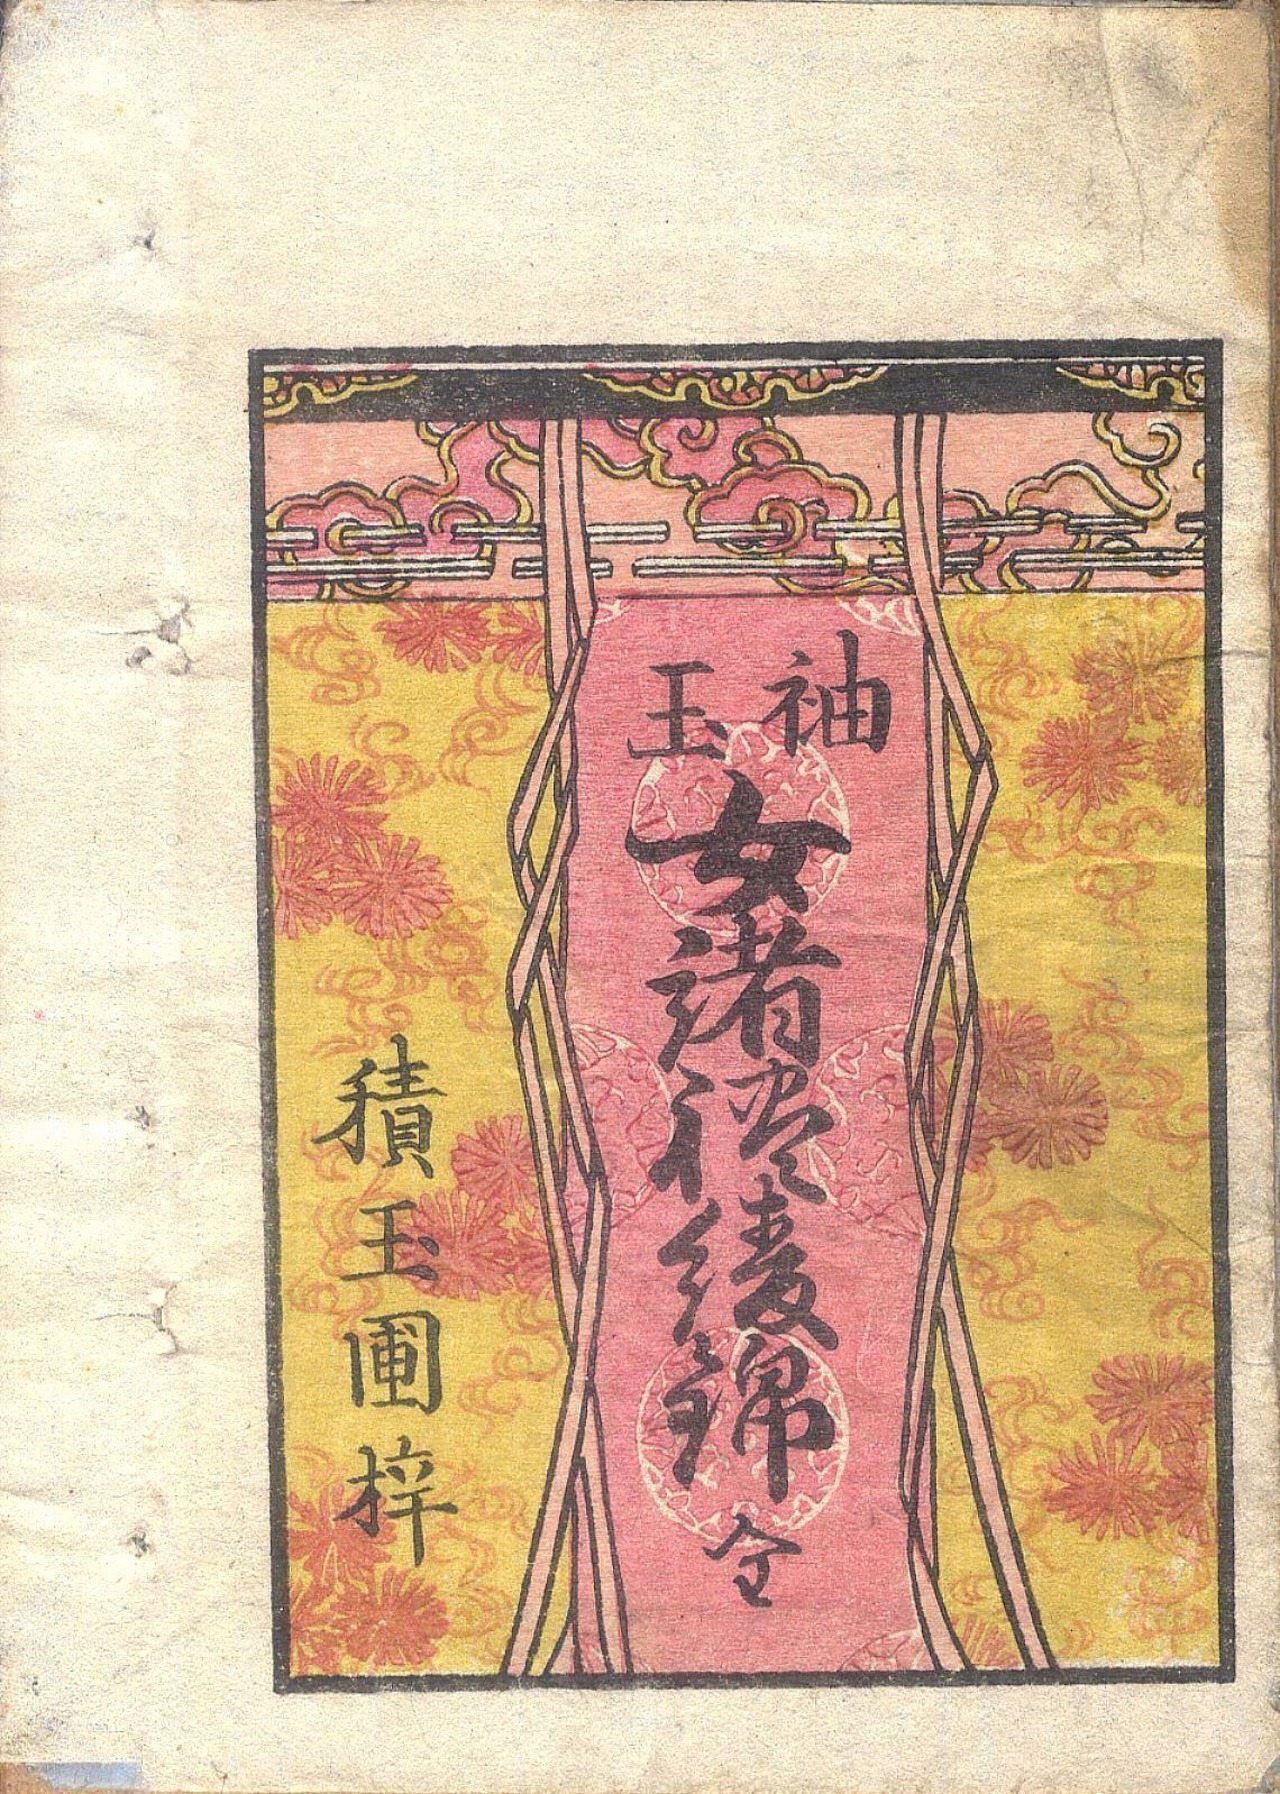 袖玉
女諸礼綾錦 全
積玉圃梓